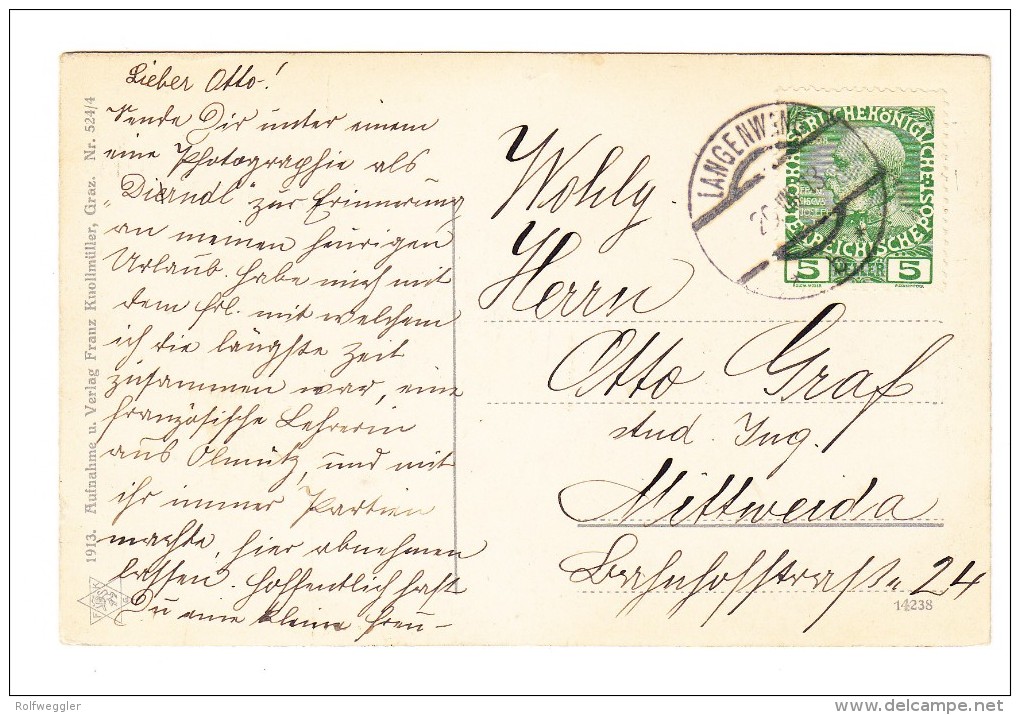 Lieber Otto!
Sende Dir unter einem
eine Photographie als
„Dierndl" zur Erinnerung
an meinen heurigen
Urlaub. Habe mich mit
dem Frl. mit welchem
ich die längste Zeit
zusammen war, eine
französische Lehrerin
aus Olmütz, und mit
ihr immer Partien
machte, hier abnehmen
lassen. Hoffentlich hast
Du eine kleine Freu-
1913. Aufnahme u. Verlag Franz Knollmüller, Graz. Nr. 524/4
LANGENWANG
KAISERLICHEKÖNIGLICHE
ÖSTERREICHISCHEPOST
5 HELLER 5
Wohlg.
Herrn
Otto Graf
stud. Ing.
Mittweida
Bahnhofstraße 24
14238
Rolfweggler
delcampe.net